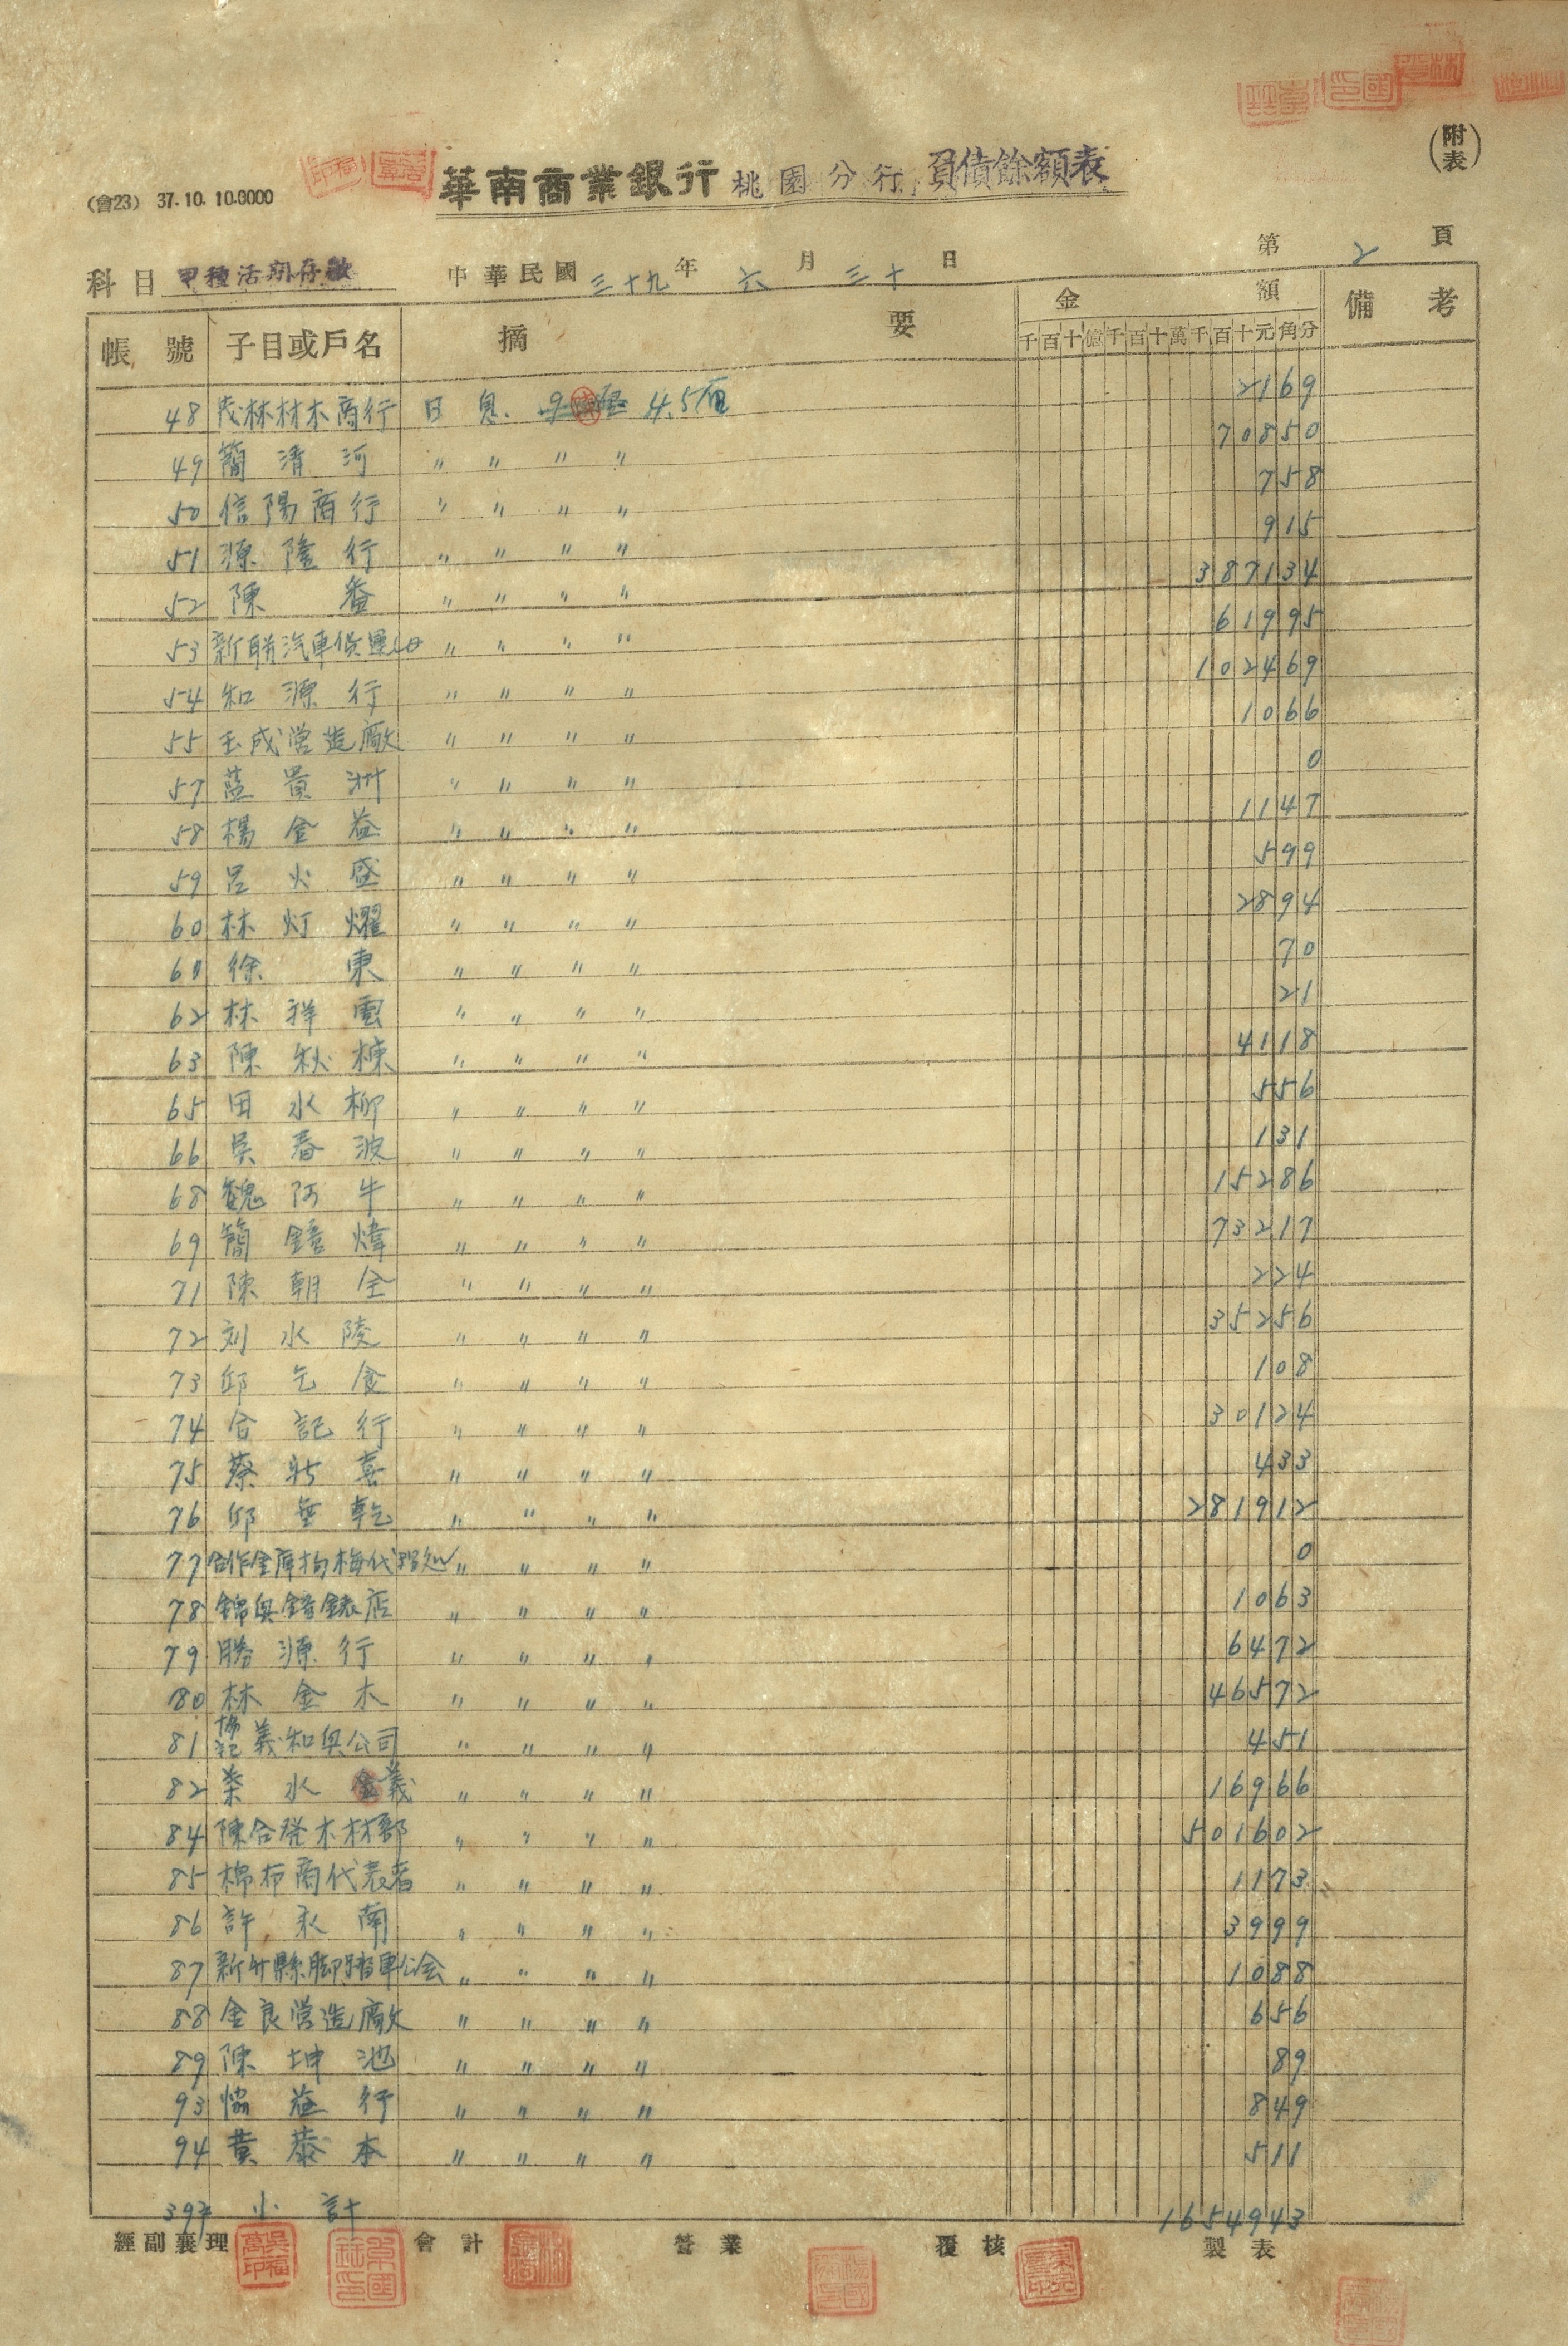 (附表)
(會23) 37.10.10.0000
華南商業銀行 桃園分行 負債餘額表
科目 甲種活期存款 中華民國 三十九年 六月 三十日 第 2 頁
帳號 子目或戶名 摘要 金額 備考
千百十億千百十萬千百十元角分
48 茂林材木商行 日息 4.5厘 2169
49 簡清河 〃 〃 〃 〃 70850
50 信陽商行 〃 〃 〃 〃 758
51 源隆行 〃 〃 〃 〃 915
52 陳番 〃 〃 〃 〃 387134
53 新聯汽車貨運 〃 〃 〃 〃 61995
54 和源行 〃 〃 〃 〃 102469
55 玉成営造廠 〃 〃 〃 〃 1066
57 藍貴洲 〃 〃 〃 〃 0
58 楊金益 〃 〃 〃 〃 1147
59 呂火盛 〃 〃 〃 〃 599
60 林灯耀 〃 〃 〃 〃 2894
61 徐東 〃 〃 〃 〃 70
62 林祥雲 〃 〃 〃 〃 21
63 陳秋棟 〃 〃 〃 〃 4118
65 田水柳 〃 〃 〃 〃 556
66 吳春波 〃 〃 〃 〃 131
68 魏阿牛 〃 〃 〃 〃 15286
69 簡鐘煒 〃 〃 〃 〃 73217
71 陳朝全 〃 〃 〃 〃 224
72 刘水陵 〃 〃 〃 〃 35256
73 邱乞食 〃 〃 〃 〃 108
74 合記行 〃 〃 〃 〃 30124
75 蔡新喜 〃 〃 〃 〃 433
76 邱垂乾 〃 〃 〃 〃 281912
77 合作金庫楊梅代理処 〃 〃 〃 〃 0
78 錦興鐘錶店 〃 〃 〃 〃 1063
79 勝源行 〃 〃 〃 〃 6472
80 林金木 〃 〃 〃 〃 46572
81 協記義和興公司 〃 〃 〃 〃 451
82 葉水義 〃 〃 〃 〃 16966
84 陳合発木材部 〃 〃 〃 〃 501602
85 棉布商代表者 〃 〃 〃 〃 1173
86 許永南 〃 〃 〃 〃 3999
87 新竹縣脚踏車公会 〃 〃 〃 〃 1088
88 金良営造廠 〃 〃 〃 〃 656
89 陳坤池 〃 〃 〃 〃 89
93 協益行 〃 〃 〃 〃 849
94 黄恭本 〃 〃 〃 〃 511
39 小計 1654943
經副襄理 會計 營業 覆核 製表
吳福萬印